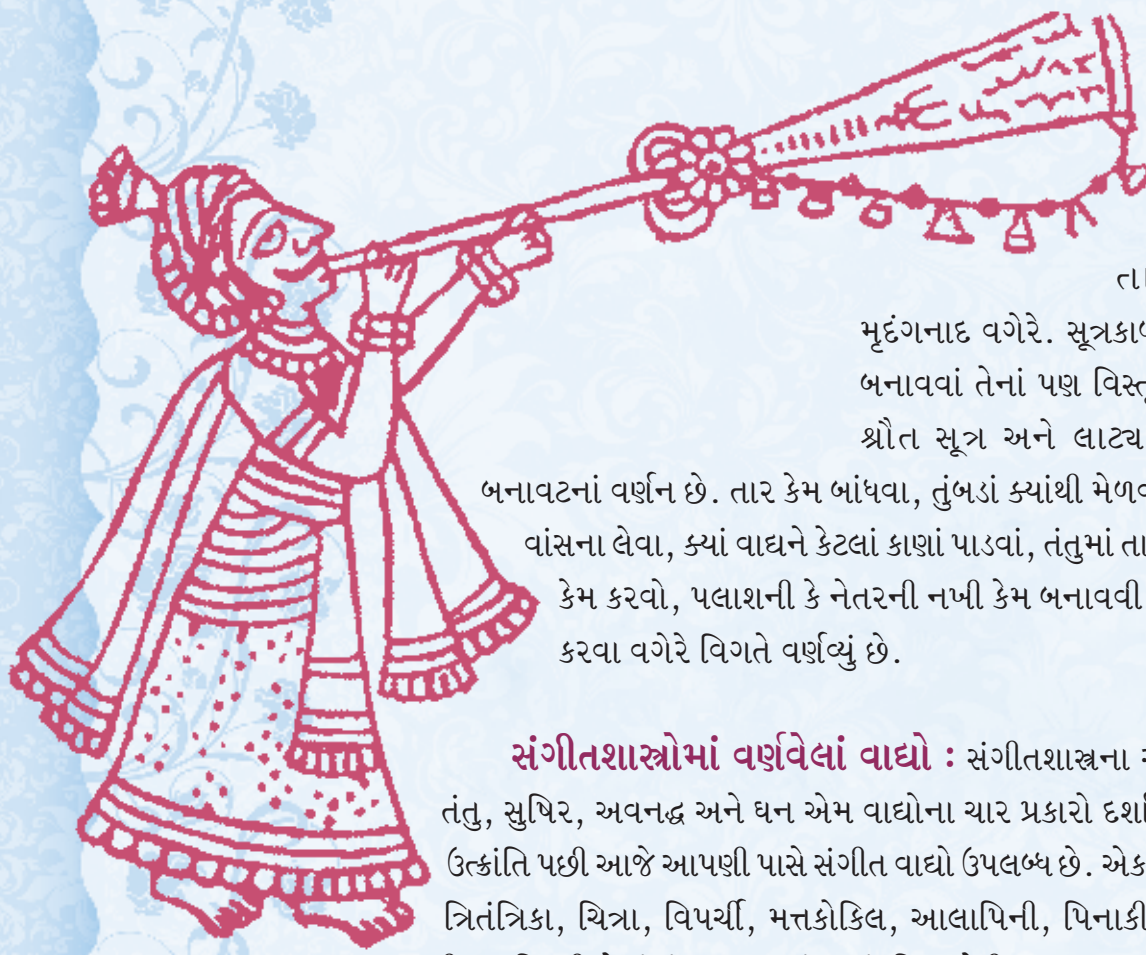 મૃદંગનાદ વગેરે.
બનાવવાં તેનાં પણ
શ્રૌત સૂત્ર અને લાટ્ય
બનાવટનાં વર્ણન છે. તાર કેમ બાંધવા, તુંબડાં ક્યાંથી
વાંસના લેવા, ક્યાં વાદ્યને કેટલાં કાણાં પાડવાં, તંતુમાં
કેમ કરવો, પલાશની કે નેતરની નખી કેમ બનાવવી
કરવા વગેરે વિગતે વર્ણવ્યું છે.
સંગીતશાસ્ત્રોમાં વર્ણવેલાં વાદ્યો : સંગીતશાસ્ત્રના
તંતુ, સુષિર, અવનદ્ધ અને ઘન એમ વાદ્યોના ચાર પ્રકારો
ઉત્ક્રાંતિ પછી આજે આપણી પાસે સંગીત વાદ્યો ઉપલબ્ધ છે. એક
ત્રિતંત્રિકા, ચિત્રા, વિપચી, મત્તકોકિલ, આલાપિની, પિનાકી